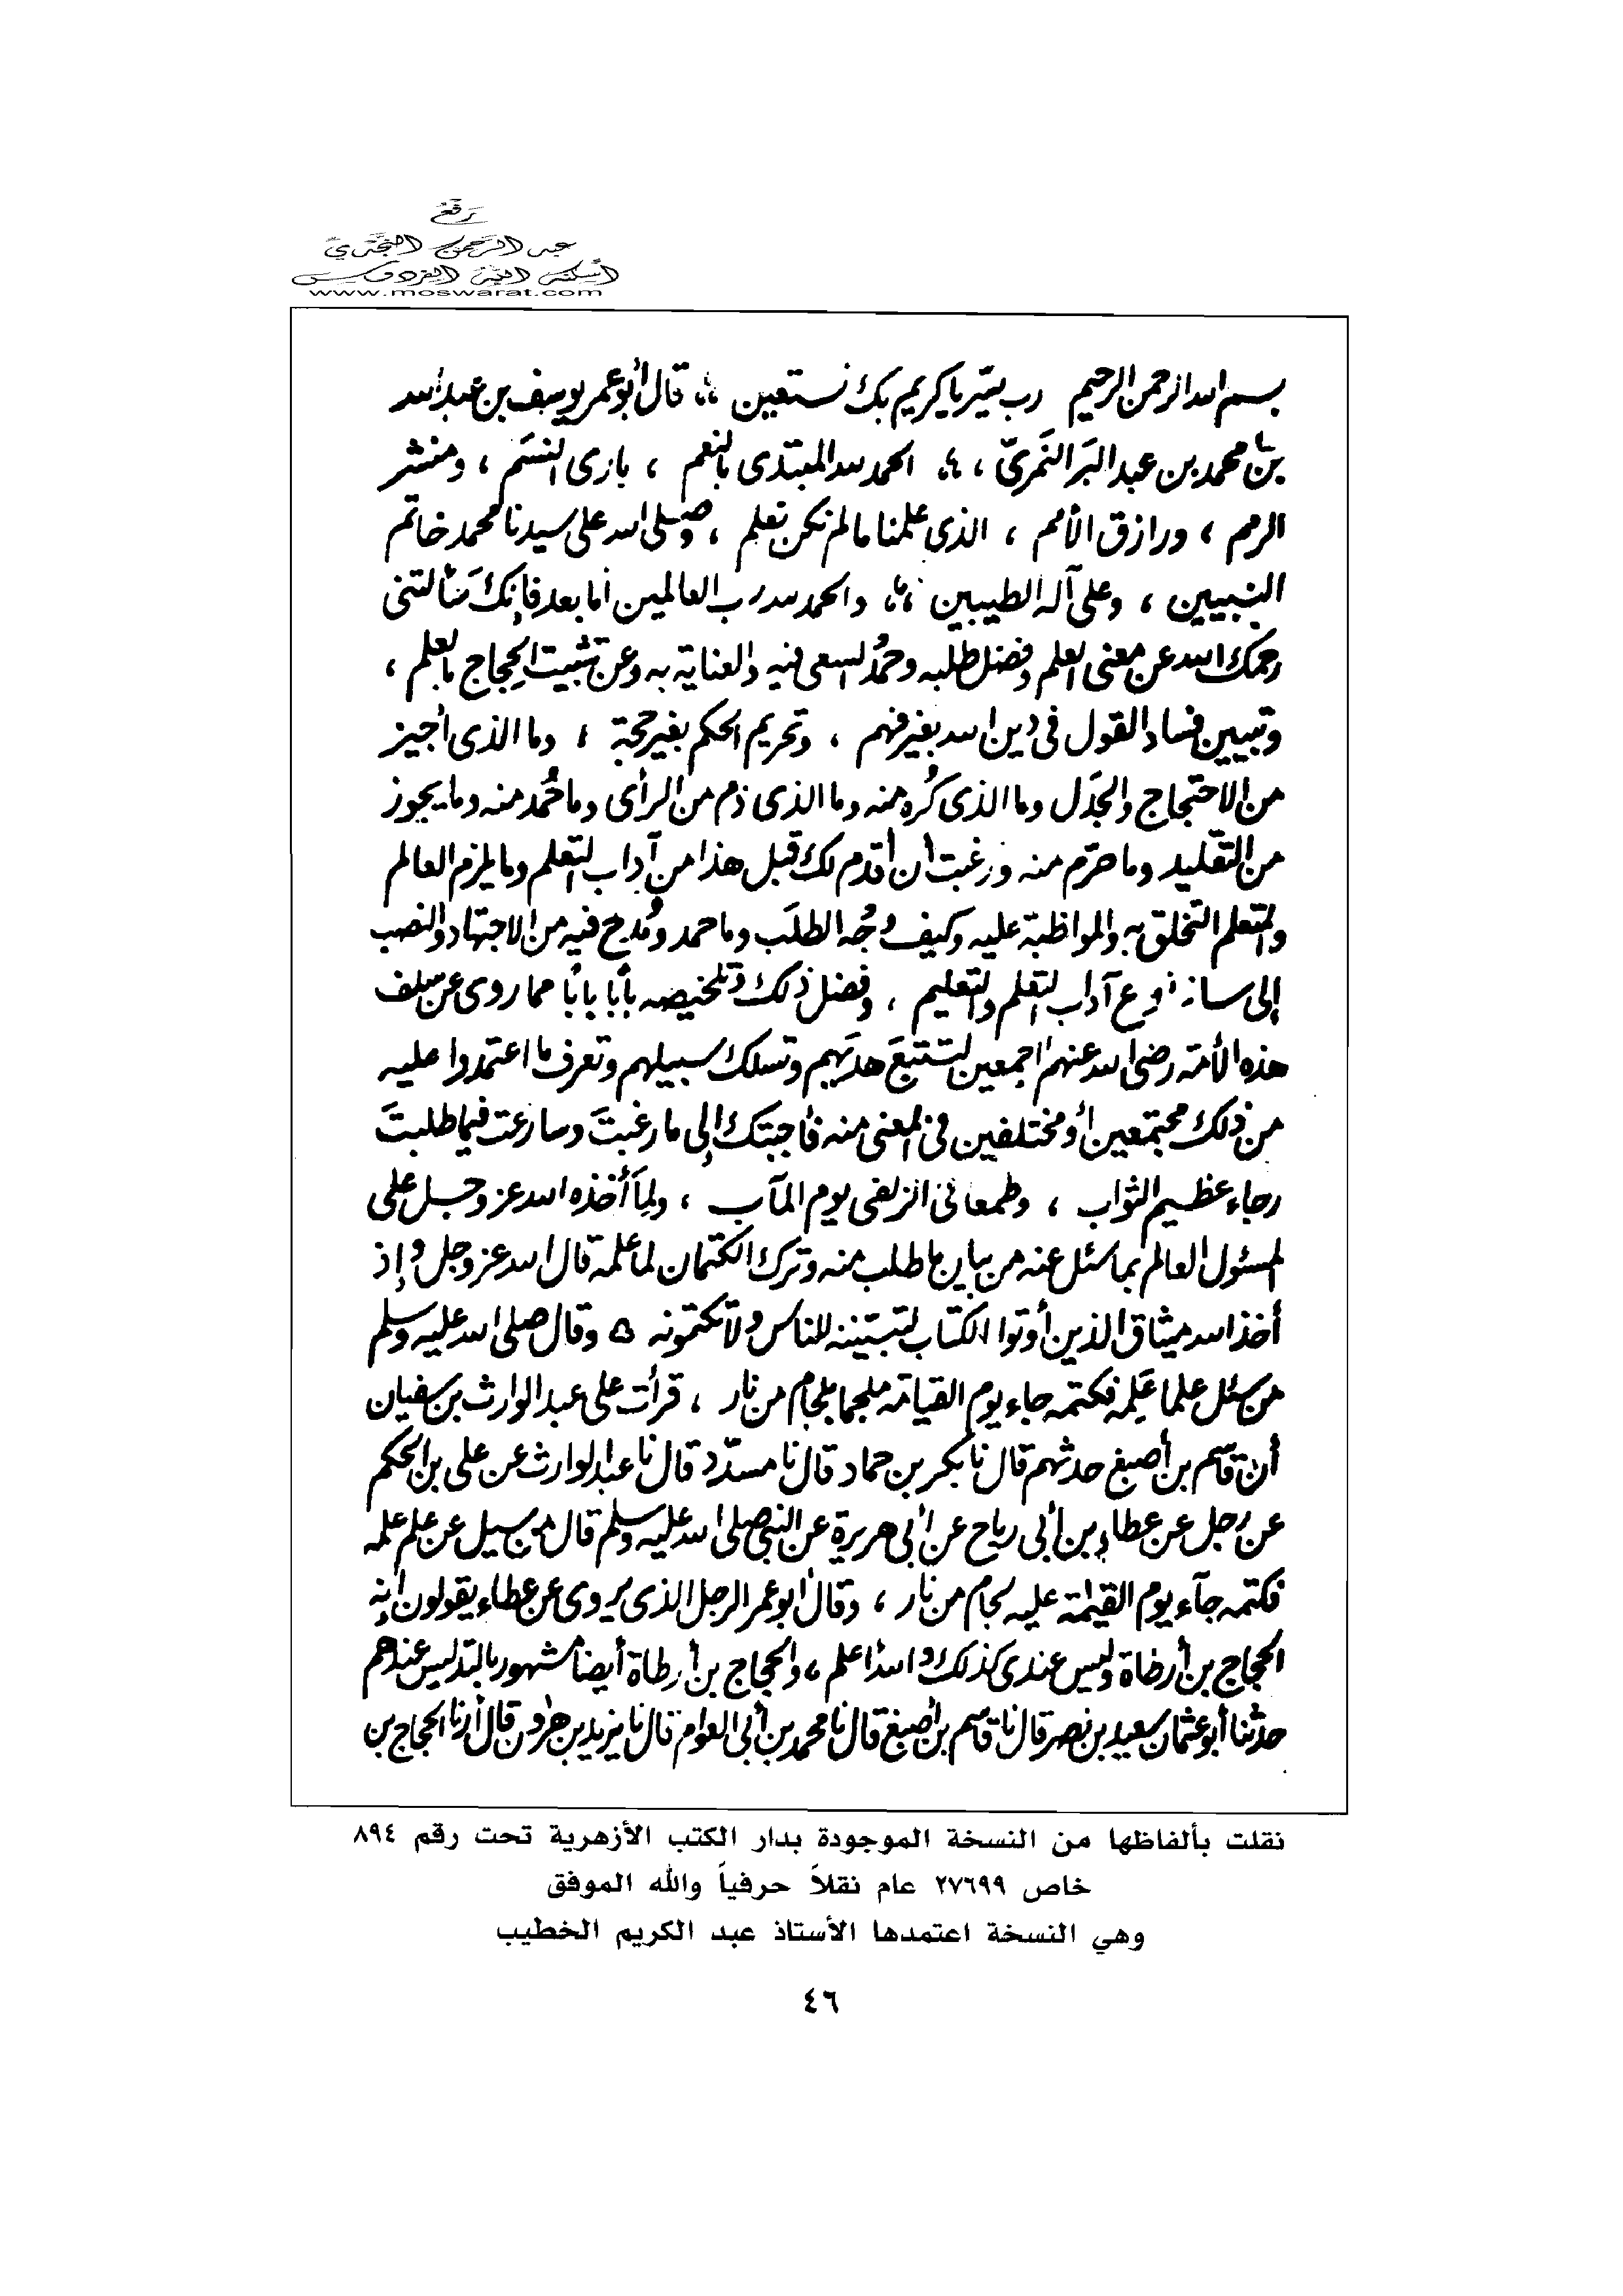 رفع
عبد الرحمن النجدي
أسكنه الله الفردوس
www.moswarat.com
بسم الله الرحمن الرحيم رب يسّر يا كريم بك نستعين ؞ قال أبو عمر يوسف بن عبد الله
بن محمد بن عبد البَر النَمَريّ ، ؞ الحمد لله المبتدى بالنعم ، بارى النسَم ، ومنشر
الرمم ، ورازق الأمم ، الذى علمنا مالم نكن نعلم ، وصلى الله على سيدنا محمد خاتم
النبيين ، وعلى آله الطيبين ؞ والحمد لله رب العالمين أما بعد فإنكَ سألتنى
رحمك الله عن معنى العلم وفضل طلبه وحمْد السعى فيه والعناية به وعن تثبيت الحِجاج بالعلم ،
وتبيين فساد القول فى دين الله بغير فهم ، وتحريم الحكم بغير حجة ، وما الذى أجيز
من الاحتجاج والجَدَل وما الذى كُره منه وما الذى ذم من الرأى وما حُمد منه وما يجوز
من التقليد وما حرّم منه ورغبت أن أقدم لك قبل هذا من آداب التعلم وما يلزم العالم
والمتعلم التخلق به والمواظبة عليه وكيف وجُه الطلَب وما حمد ومُدح فيه من الاجتهاد والنصب
إلى سائر نوع آداب التعلم والتعليم ، وفضل ذلك وتلخيصه بابًا بابًا مما روى عن سلف
هذه الأمة رضى الله عنهم اجمعين لتتبعَ هديَهم وتسلك سبيلهم وتعرف ما اعتمدوا عليه
من ذلك مجتمعين أو مختلفين فى المعنى منه فأجبتك إلى ما رغبتَ وسارعت فيما طلبتَ
رجاء عظيم الثواب ، وطمعا فى الزلفى يوم المآب ، ولِمَا أخذه الله عز وجل على
المسئول العالم بما سئل عنه من بيان ما طلب منه وترك الكتمان لما علمه قال الله عز وجل وإذ
أخذ الله ميثاق الذين أوتوا الكتاب لتبيننه للناس ولا تكتمونه ه وقال صلى الله عليه وسلم
من سئل علما عَلِمه فكتمه جاء يوم القيامة ملجما بلجام من نار ، قرأت على عبد الوارث بن سفيان
أن قاسم بن أصبغ حدثهم قال نا بكر بن حماد قال نا مسدّد قال نا عبد الوارث عن على بن الحكم
عن رجل عن عطاء بن أبى رباح عن أبى هريرة عن النبى صلى الله عليه وسلم قال من سيل عن علم علمه
فكتمه جآء يوم القيٰمة عليه لجام من نار ، وقال أبو عمر الرجل الذى يروى عن عطاء يقولون إنه
الحجاج بن أرضاة وليس عندى كذلك والله أعلم ، والحجاج بن أرطاة أيضا مشهور بالتدليس عندهم
حدثنا أبو عثمان سعيد بن نصر قال نا قاسم بن أصبغ قال نا محمد بن أبى العوام قال نا يزيد بن هٰرون قال أرنا الحجاج بن
نقلت بألفاظها من النسخة الموجودة بدار الكتب الأزهرية تحت رقم ٨٩٤
خاص ٢٧٦٩٩ عام نقلاً حرفياً والله الموفق
وهي النسخة اعتمدها الأستاذ عبد الكريم الخطيب
٤٦